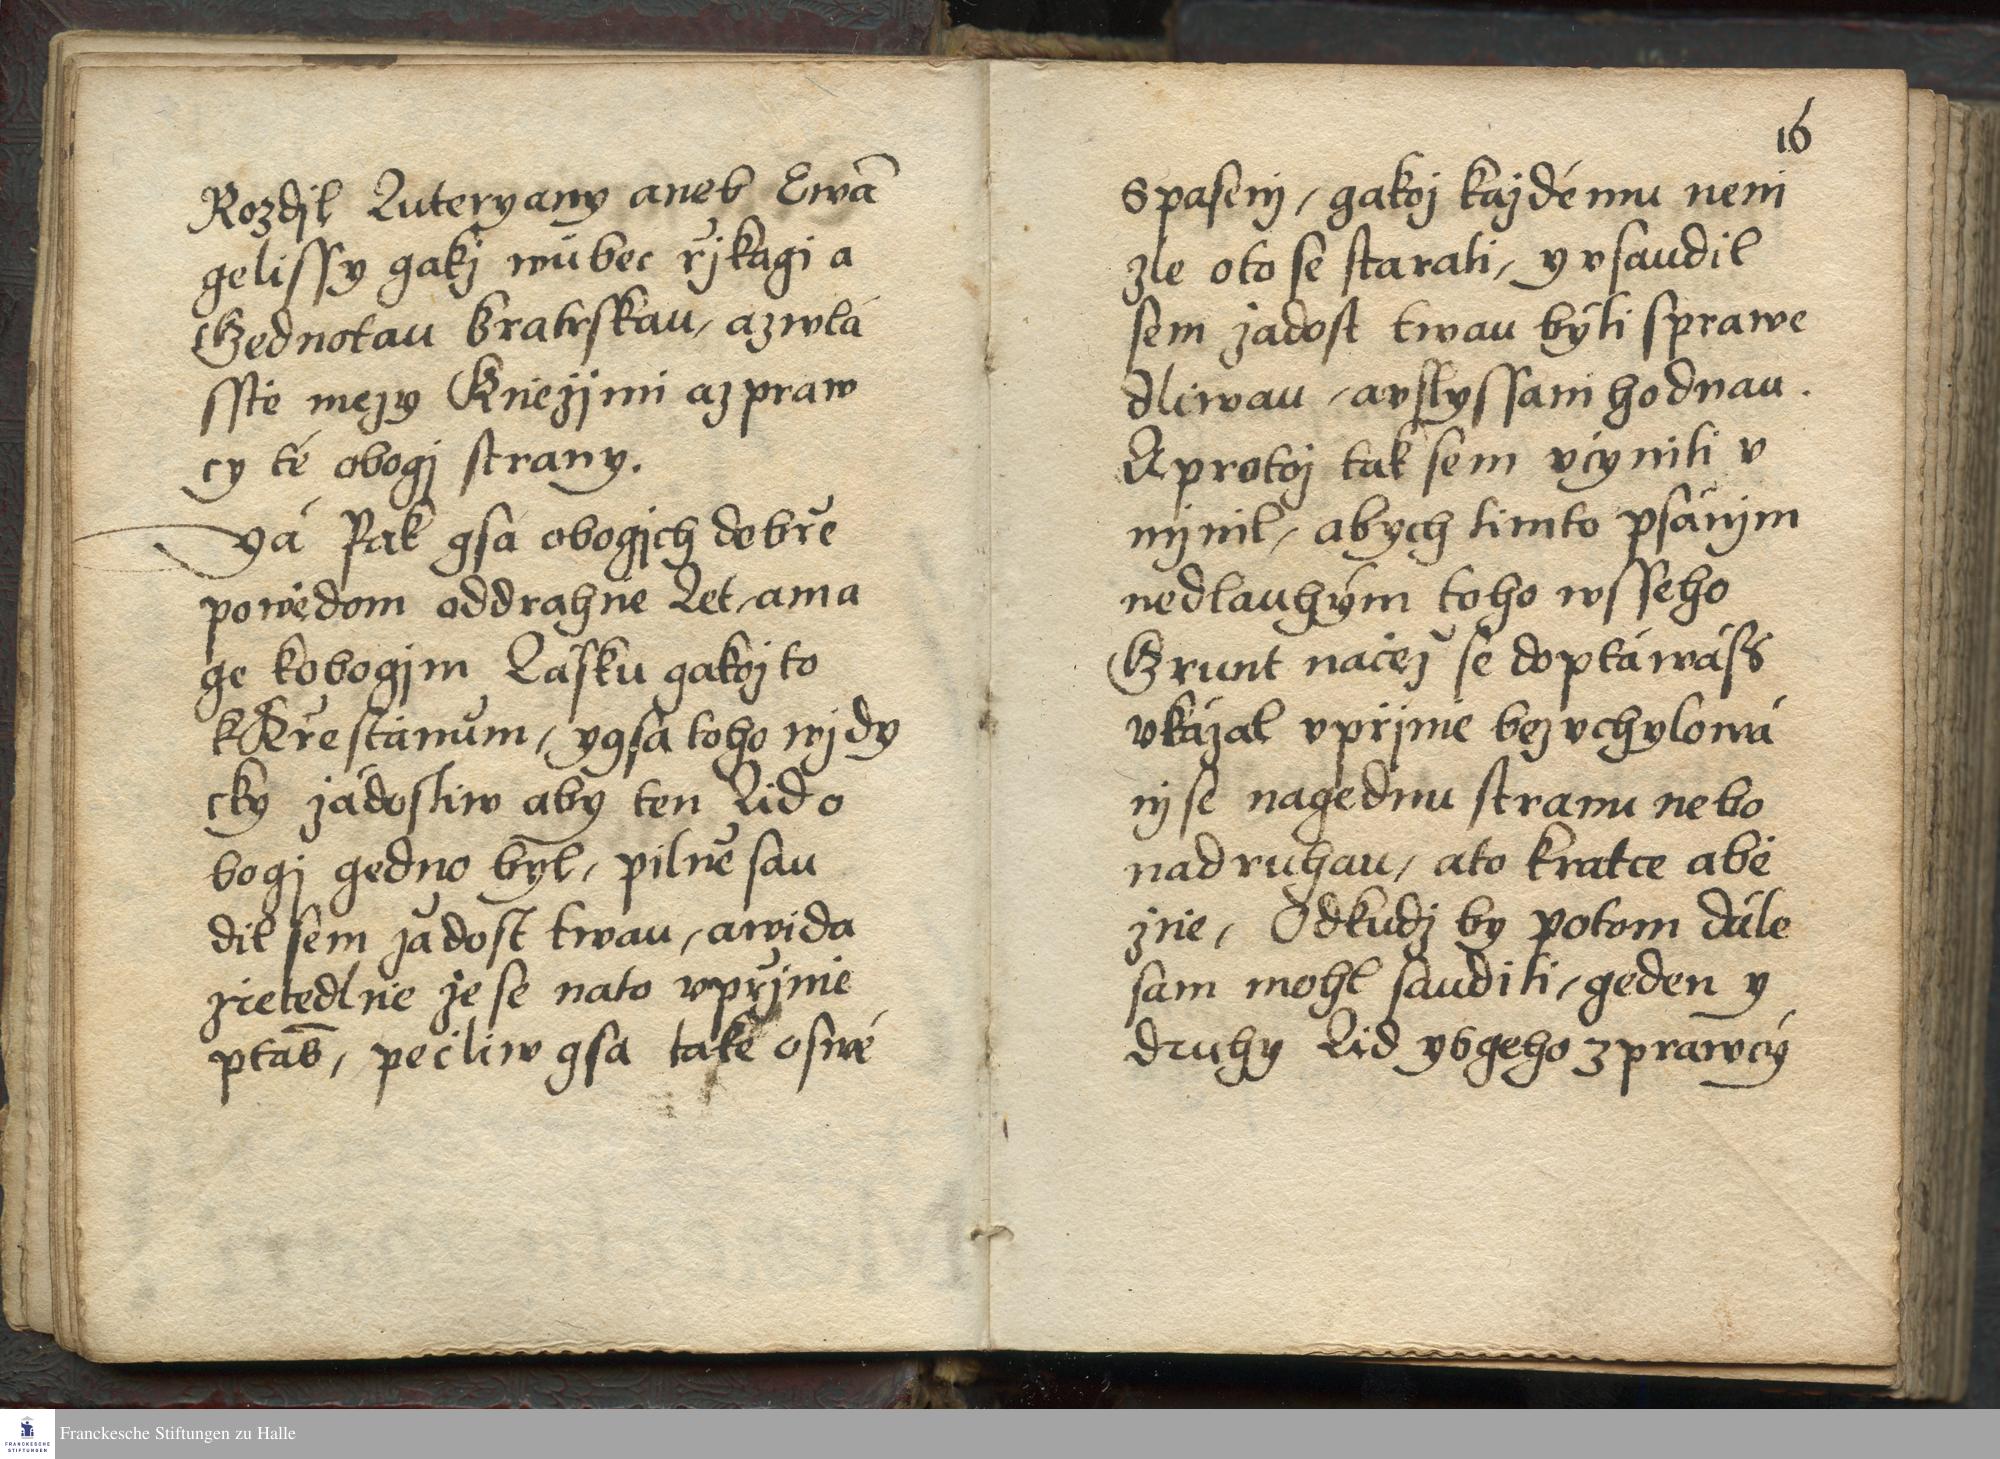 Rozdjl Luteryany aneb Ewā
gelissy gakž wůbec řjkagi a
Gednotau Bratrskau, azwlá
sstie mezy Kniežjmi azpraw
cy té obogj strany.
yá Pak gsa obogjch dobře
powědom oddrahnie Let, ama
ge kobogjm Lásku gakožto
kKřestianům, ygsa toho wždy
cky žádostiw aby ten Lid o
bogj gedno był, pilně sau
dil sem žádost twau, awida
zřetedlnie že se nato vpřjmie
ptaš, pečliw gsa také oswé
16
Spasenj, gakož každému neni
zle oto se starati, y vsaudil
sem žadost twau býti sprawe
dliwau, avslyssani hodnau.
A protož tak sem včyniti v
mjnil, abych timto psánjm
nedlauhým toho wsseho
Grunt načež se doptáwáss
vkázal vpřjmie bez vchylowá
nj se nagednu stranu nebo
nadruhau, ato kratce abě
žnie, Odkudž by potom dále
sam mohl sauditi, geden y
druhy Lid ybgeho zprawcý
Franckesche Stiftungen zu Halle
FRANCKESCHE
STIFTUNGEN